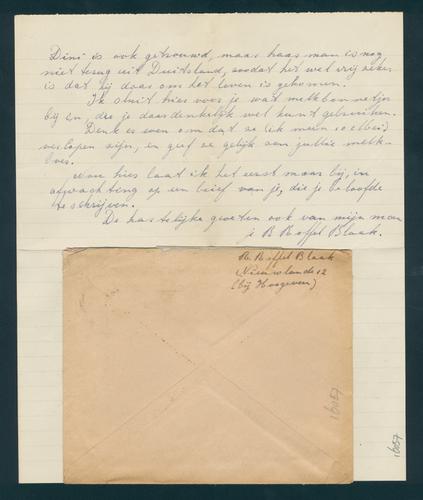 Dini is ook getrouwd, maar haar man is nog
niet terug uit Duitsland, zoodat het wel vrij zeker
is dat hij daar om het leven is gekomen.
Ik sluit hier voor je wat melkbonnetjes
bij in, die je daar denkelijk wel kunt gebruiken.
Denk er even om dat ze (ik meen 10 elbei)
verlopen zijn, en geef ze gelijk aan jullie melk-
boer.
Voor hier laat ik het eerst maar bij, in
afwachting op een brief van je, die je beloofde
te schrijven.
De hartelijke groeten ook van mijn man
je B Roffel Blaak.
B Roffel Blaak
Nieuwlande 12
(bij Hoogeveen)
16057
16057